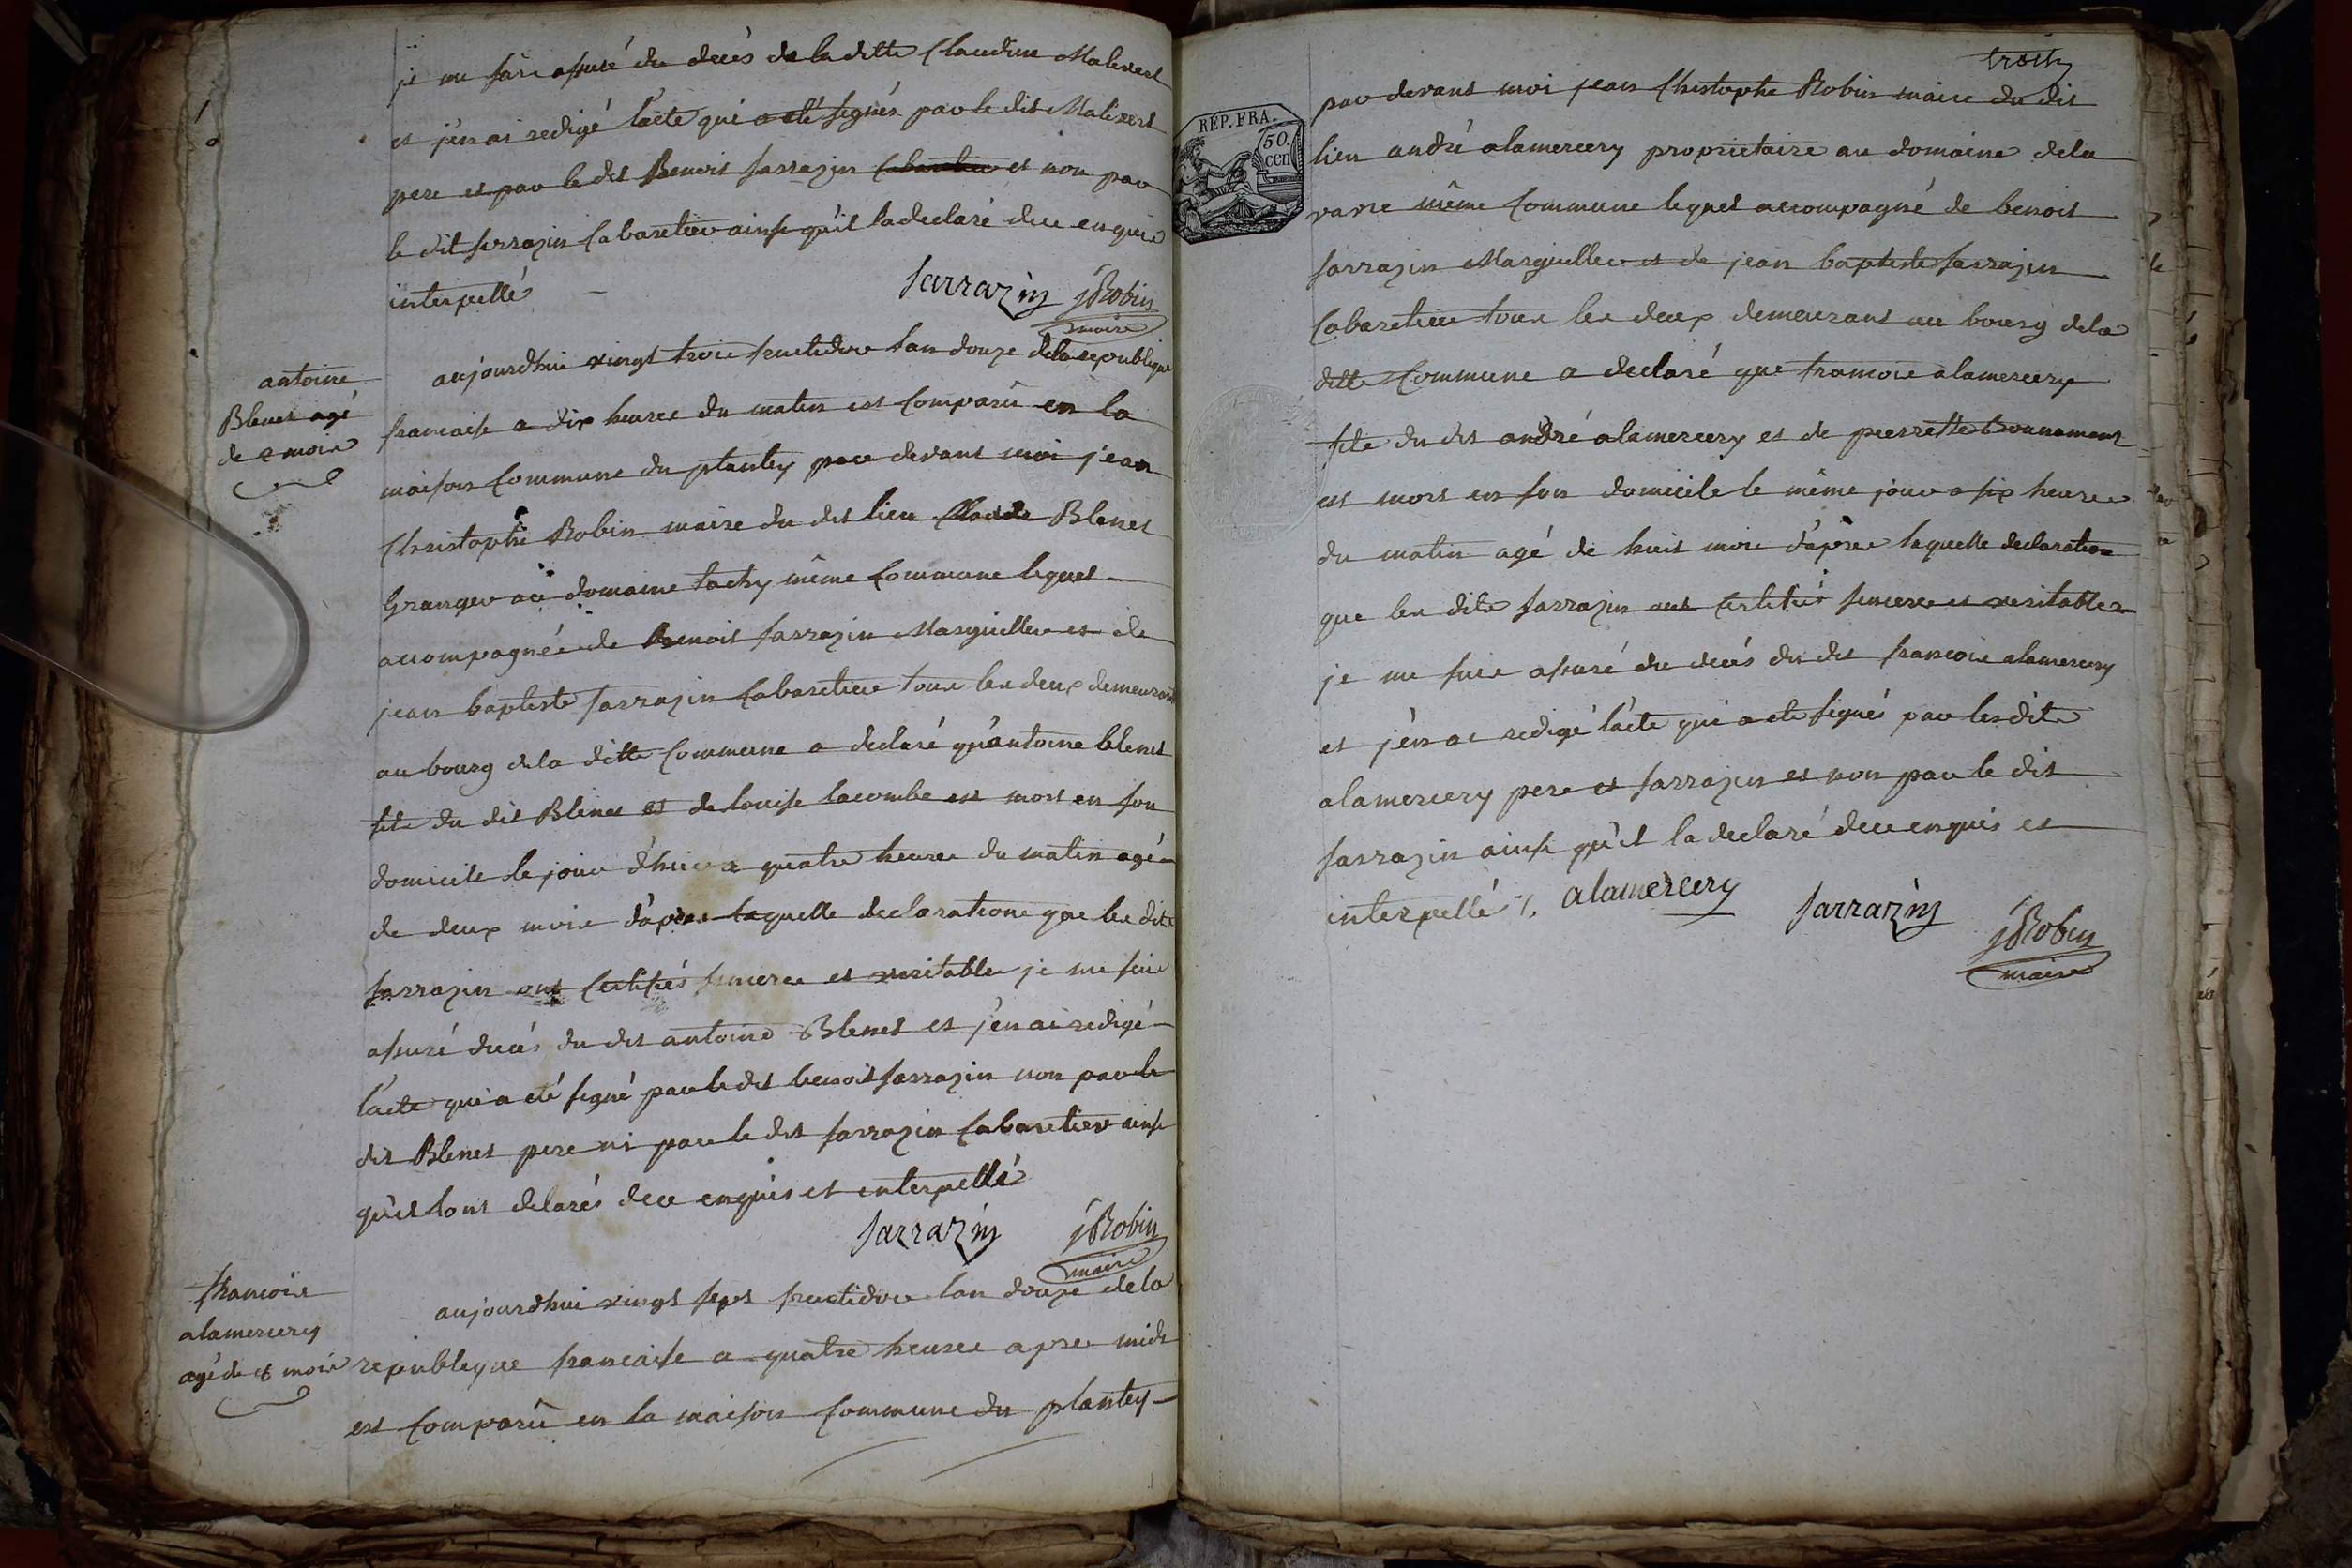 je me suis assuré du decès de la ditte Claudine Malivert
et j'en ai redigé lacte qui a eté signés par le dit Malivert
pere et par le dit Benoit Sarrazin et non par
le dit sarrazin Cabaretier ainsi qu'il la declaré de ce enquis
interpellé
Sarrazin JRobin
maire
antoine
Blenet agé
de 2 mois
aujourdhui vingt trois fructidor lan douze de la republique
francaise a dix heures du matin est Comparû en la
maison Commune du plantey par devant moi jean
Christophe Robin maire du dit lieu Claude Blenet
Granger au domaine tachy même Commune lequel
accompagnée de Benoit sarrazin Marguillier et de
jean baptiste sarrazin Cabaretier tous les deux demeurant
au bourg de la ditte Commune a declaré qu'antoine blenet
fils du dit Blenet et de louise lacombe est mort en son
domicile le jour d'hier a quatre heures du matin agé
de deux mois d'après laquelle declarations que les dits
sarrazin ont Certifiés sincere et veritable je me suis
assuré decés du dit antoine Blenet et j'en ai redigé
l'acte qui a eté signé par le dit benoit sarrazin non par le
dit Blenet pere ni par le dit sarrazin Cabaretier ainsi
qu'il lont delarés de ce enquis et interpellé
Sarrazin JRobin
maire
francois
alamercery
agé de 8 mois
aujourdhui vingt sept fructidor lan douze de la
republique francaise a quatre heures apres midi
est Comparû en la maison Commune du plantey
REP. FRA.
50.
cen
par devant moi jean Christophe Robin maire du dit
lieu andré alamercery proprietaire au domaine dela
varre même Commune lequel accompagné de benoit
sarrazin Marguillier et de jean baptiste sarrazin
Cabaretier tous les deux demeurant au bourg dela
ditte Commune a declaré que francois alamercery
fils du dit andré alamercery et de pierrette Bonnamour
est mort en son domicile le même jour a six heures
du matin agé de huit mois d'après laquelle declaration
que les dits sarrazin ont Certifiés sincere et veritable
je me suis assuré du decés du dit francois alamercery
et j'en ai redigé l'acte qui a eté signés par les dits
alamercery pere et sarrazin et non par le dit
sarrazin ainsi qu'il la declaré de ce enquis et
interpellé ./. alamercery Sarrazin
JRobin
maire